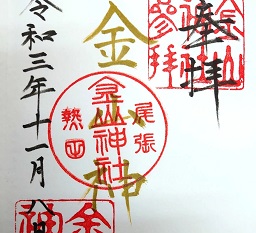 奉拝
金山神
尾張
金山神社
熱田
令和三年十一月八日
参拝